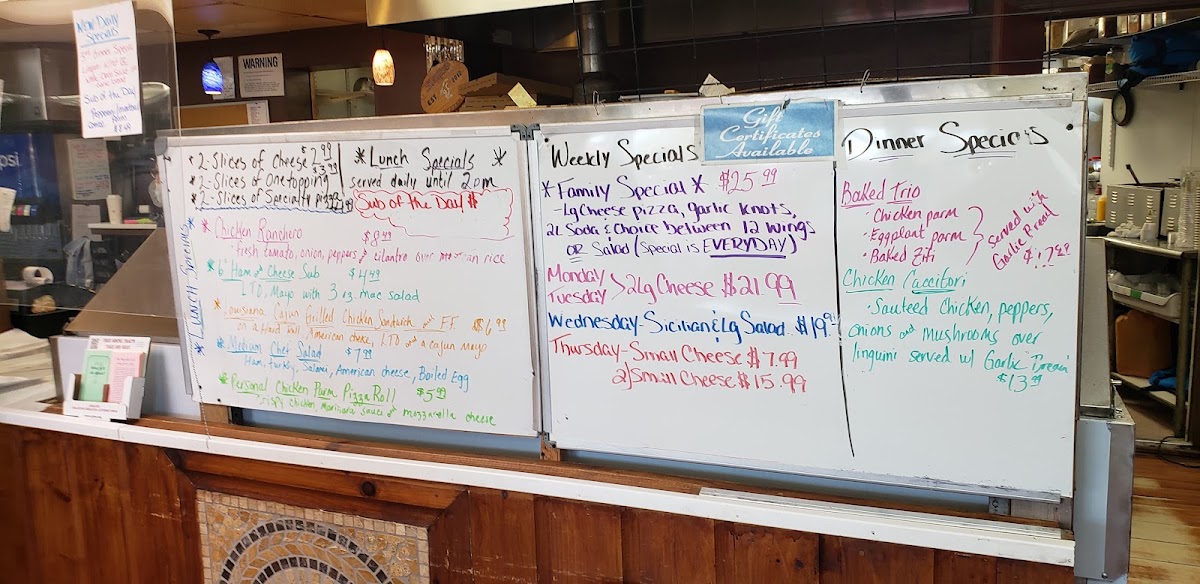 New Daily
Specials
Sub of the Day
$8.49
WARNING
pepsi
*2-Slices of Cheese $2.99
*2-Slices of One topping $3.99
*2-Slices of Specialty
* Lunch Specials *
served daily until 2pm
Sub of the Day $
* Lunch Specials *
* Chicken Ranchero $8.49
fresh tomato, onion, peppers and cilantro over rice
* 6" Ham and Cheese Sub $4.49
LTO, Mayo with 3 oz mac salad
* Louisiana Cajun Grilled Chicken Sandwich and FF $6.99
on a Hard Roll, American cheese, LTO and a cajun Mayo
* Medium Chef Salad $7.99
Ham, turkey, Salami, American cheese, Boiled Egg
* Personal Chicken Parm Pizza Roll $5.99
crispy chicken, Marinara sauce and mozzarella cheese
Weekly Specials
*Family Special* $25.99
-Lg Cheese pizza, garlic knots,
2L Soda & Choice between 12 wings
OR Salad (Special is EVERYDAY)
Monday
Tuesday >2Lg Cheese $21.99
Wednesday-Sicilian & Lg Salad $19.99
Thursday-Small Cheese $7.99
2/Small Cheese $15.99
Gift
Certificates
Available
Dinner Specials
Baked Trio
· Chicken parm
· Eggplant parm
· Baked Ziti
Served with
Garlic Bread
Chicken Caccitori
· Sauteed Chicken, peppers,
onions and Mushrooms over
linguini served w/ Garlic Bread
$13.99